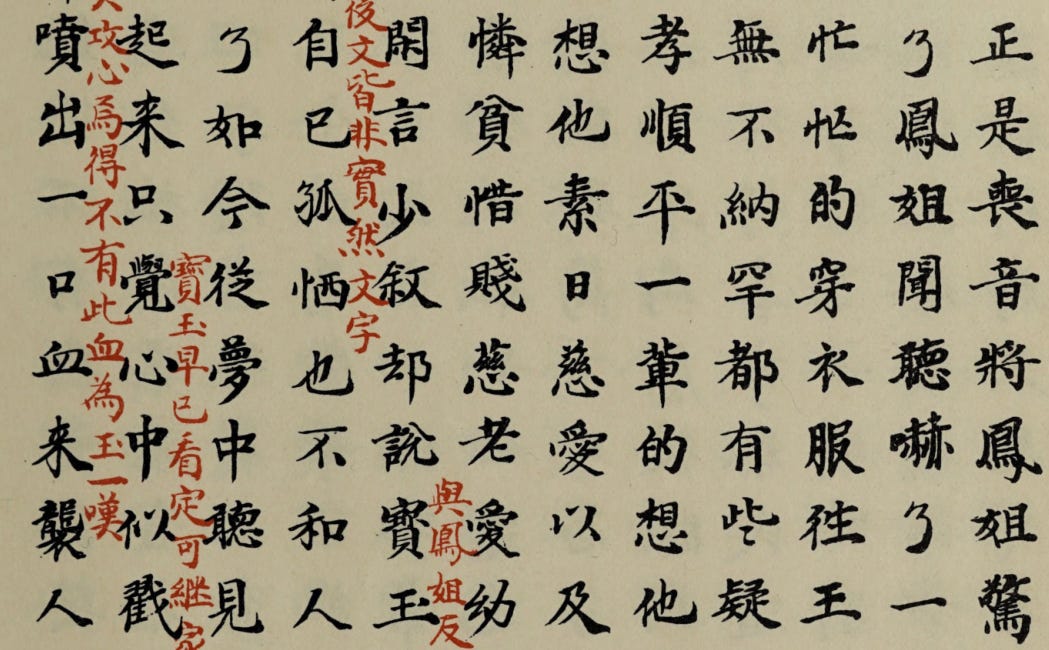 正是喪音將鳳姐驚
了鳳姐聞聽嚇了一
忙忙的穿衣服徃王
無不納罕都有些疑
孝順平一輩的想他
想他素日慈愛以及
憐貧惜賤慈老愛幼
與鳳姐反
閑言少叙却說寳玉
後文皆非實然文字
自己孤恓也不和人
了如今從夢中聽見
寶玉早已看定可継家
起来只覺心中似戳
攻心焉得不有此血為玉一嘆
噴出一口血来襲人